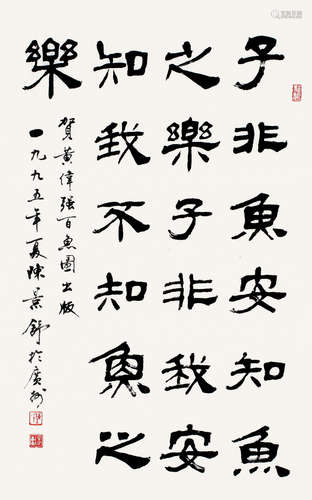 子非魚安知魚
之樂子非我安
知我不知魚之
樂
賀黃偉强百魚圖出版
一九九五年夏陳景舒於廣州